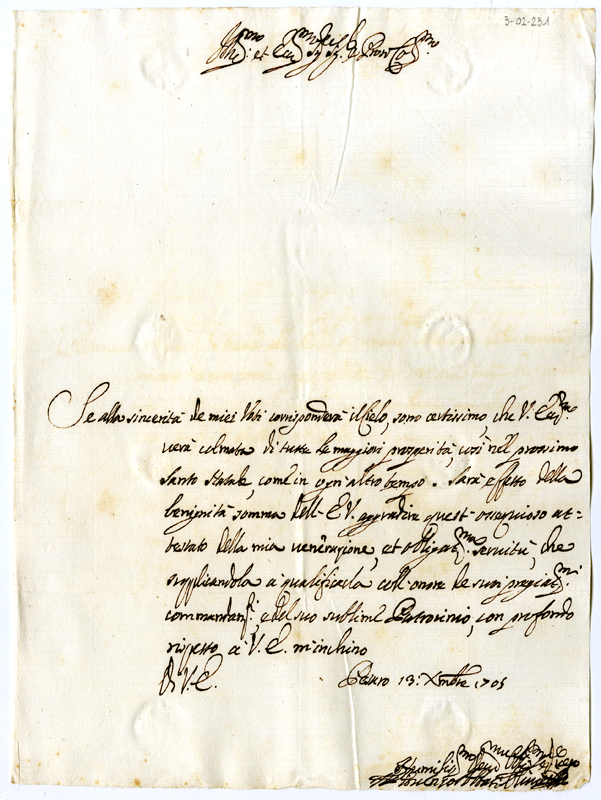 3-02-231
Ill.mo et Ecc.mo Sig.r Sig.r e Pron Col.mo
Se alla sincerità de miei Voti corrisponderà il Cielo, sono certissimo, che V. Ecc.za
verà colmata di tutte le maggiori prosperità, così nel prossimo
Santo Natale, come in ogn'altro tempo. Sarà effetto della
benignità somma dell' E.V. aggradire quest' ossequioso at-
testato della mia venerazione, et obligat.ma servitù, che
supplicandola a qualificarla coll' onore de suoi pregiat.mi
commandam.ti, e del suo sublime Patrocinio, con profondo
rispetto a V. E. m'inchino
Di V. E.
Pesaro 13: Xmbre 1705
Humiliss.mo